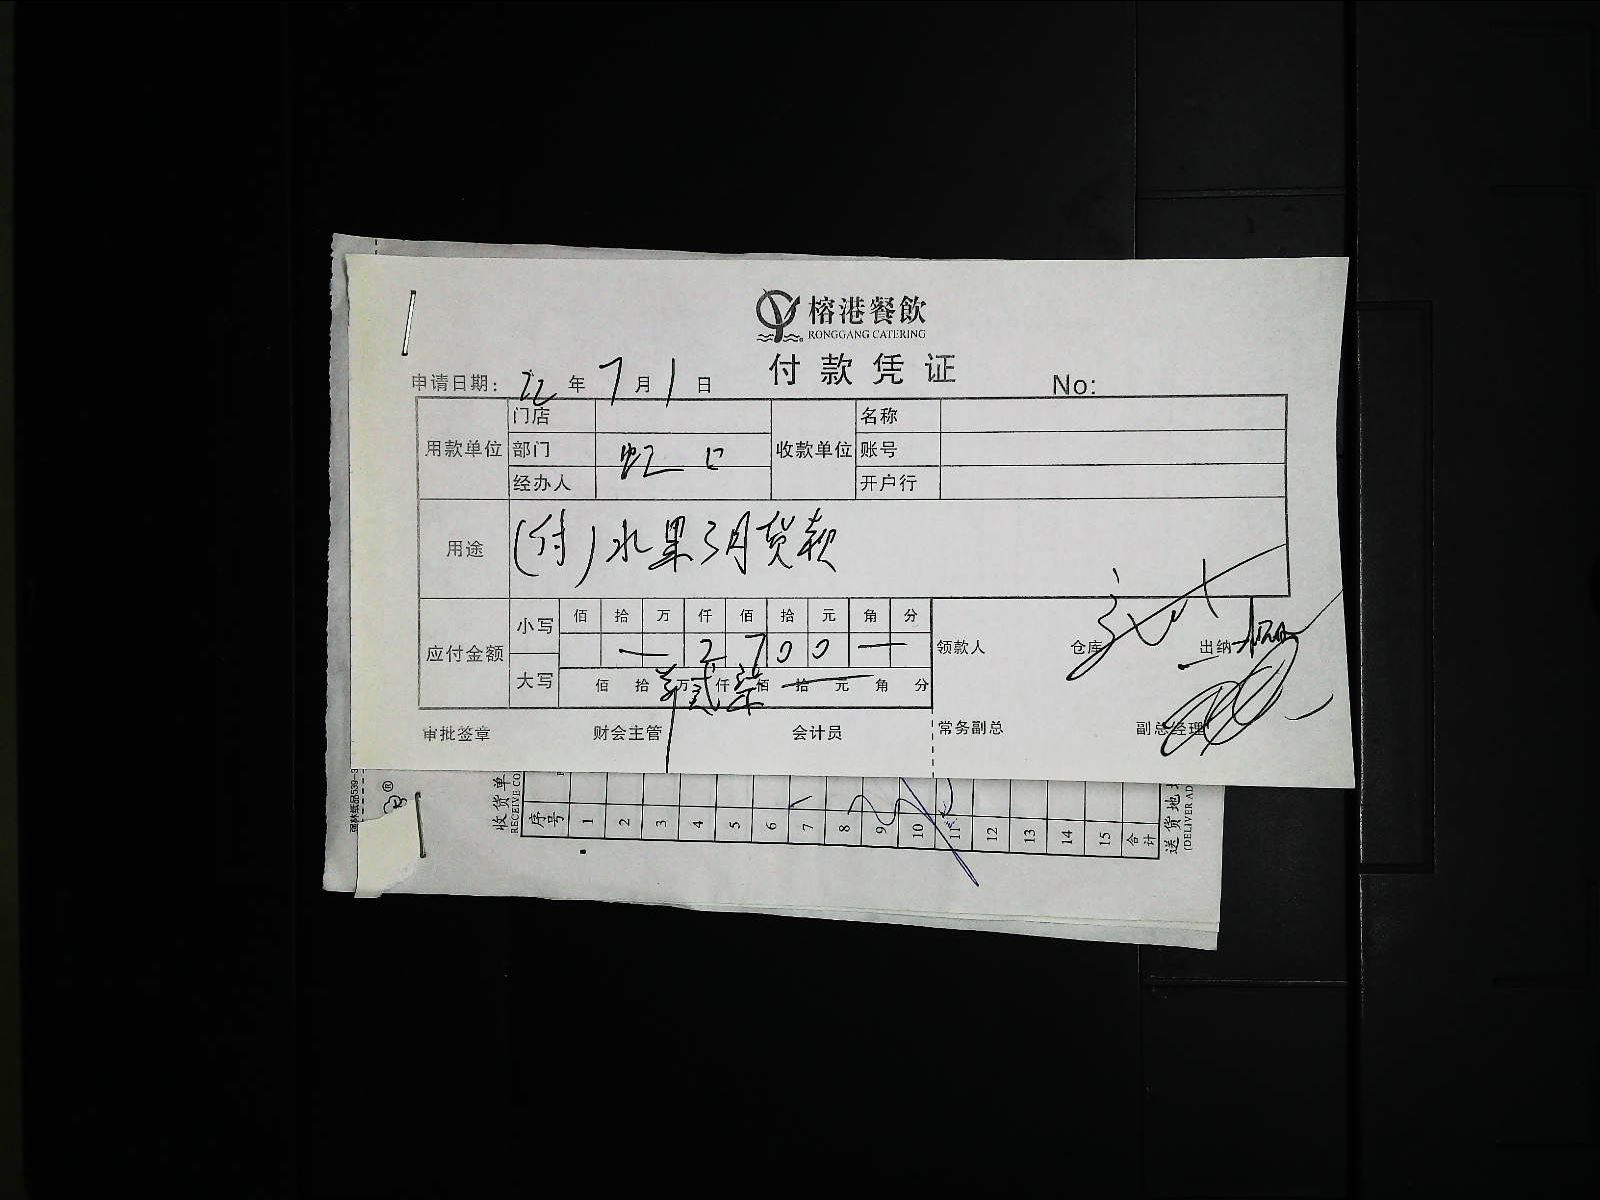 榕港餐飲
RONGGANG CATERING
付款凭证
申请日期: 22 年 7 月 1 日 No:
用款单位 门店 收款单位 名称
部门 虹口 账号
经办人 开户行
用途 (付)水果3月货款
应付金额 小写 佰 拾 万 仟 佰 拾 元 角 分
一 2 7 0 0 一
大写 佰 拾 万 仟 贰 佰 柒 拾 元 角 分
领款人 仓库 出纳
审批签章 财会主管 会计员 常务副总 副总经理
收货单
RECEIVE CO
序号 1 2 3 4 5 6 7 8 9 10 11 12 13 14 15 合计
送货地
(DELIVER AD